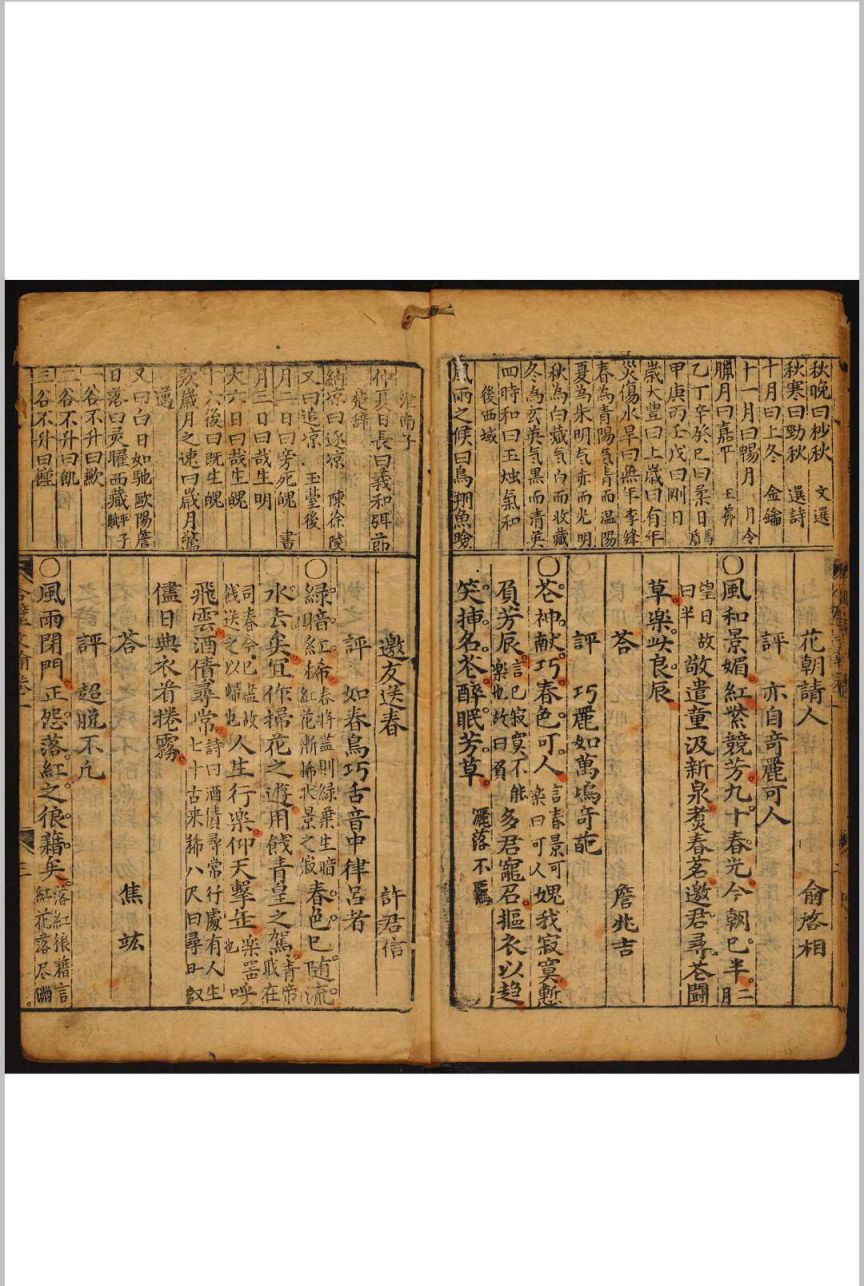 秋晚曰杪秋　文選
秋寒曰勁秋　選詩
十月曰上冬　金鑰
十一月曰暢月　月令
臘月曰嘉平
乙丁辛癸巳曰柔日
甲庚丙壬戊曰剛日
歲大豐曰上歲曰有年
災傷水旱曰無年李絳
春為青陽氣青而温陽
夏為朱明気赤而光明
秋為白藏气白而收藏
冬為玄英気黑而清英
四時和曰玉燭氣和
後西域
風雨之候曰鳥翔魚噞
花朝請人　俞啓相
評　亦自奇麗可人
○風和景媚紅紫競芳九十春光今朝已半二月
望日故曰半敬遣童汲新泉煑春茗邀君尋芲鬪
草樂此良辰
答　詹兆吉
評　巧麗如萬塢奇葩
○芲神献巧春色可人言春景可樂曰可人媿我寂寞慙
負芳辰言已寂寞不能樂也故曰負多君寵召摳衣以趋
笑揷名芲醉眠芳草　灑落不羈
淮南子
仲夏日長曰羲和弭節
楚辭
納凉曰逐凉　陳徐陵
又曰追凉　玉臺後
月二日曰旁死魄　書
月三日曰哉生明
大六日曰哉生魄
十六後曰既生魄
歎歲月之速曰歳月驚
邁
又曰白日如馳歐陽詹
日落曰灵曜西藏
一谷不升曰歉
二谷不升曰飢
三谷不升曰饉
邀友送春　許君信
評　如春鳥巧舌音中律呂者
○緑暗紅稀春將盡則緑葉生暗紅花漸稀狀景之寂春色已随流
水去矣宜作掃花之遊用餞青皇之駕青帝職在
司春今已盡故餞送之以觴也人生行樂仰天擊缶樂器也呼
飛雲酒債尋常詩曰酒債尋常行處有人生七十古来稀八尺曰尋
儘日典衣者捲霧
答　焦竑
評　超脱不凢
○風雨閉門正怨落紅之狼藉矣落紅狼藉言紅花落尽